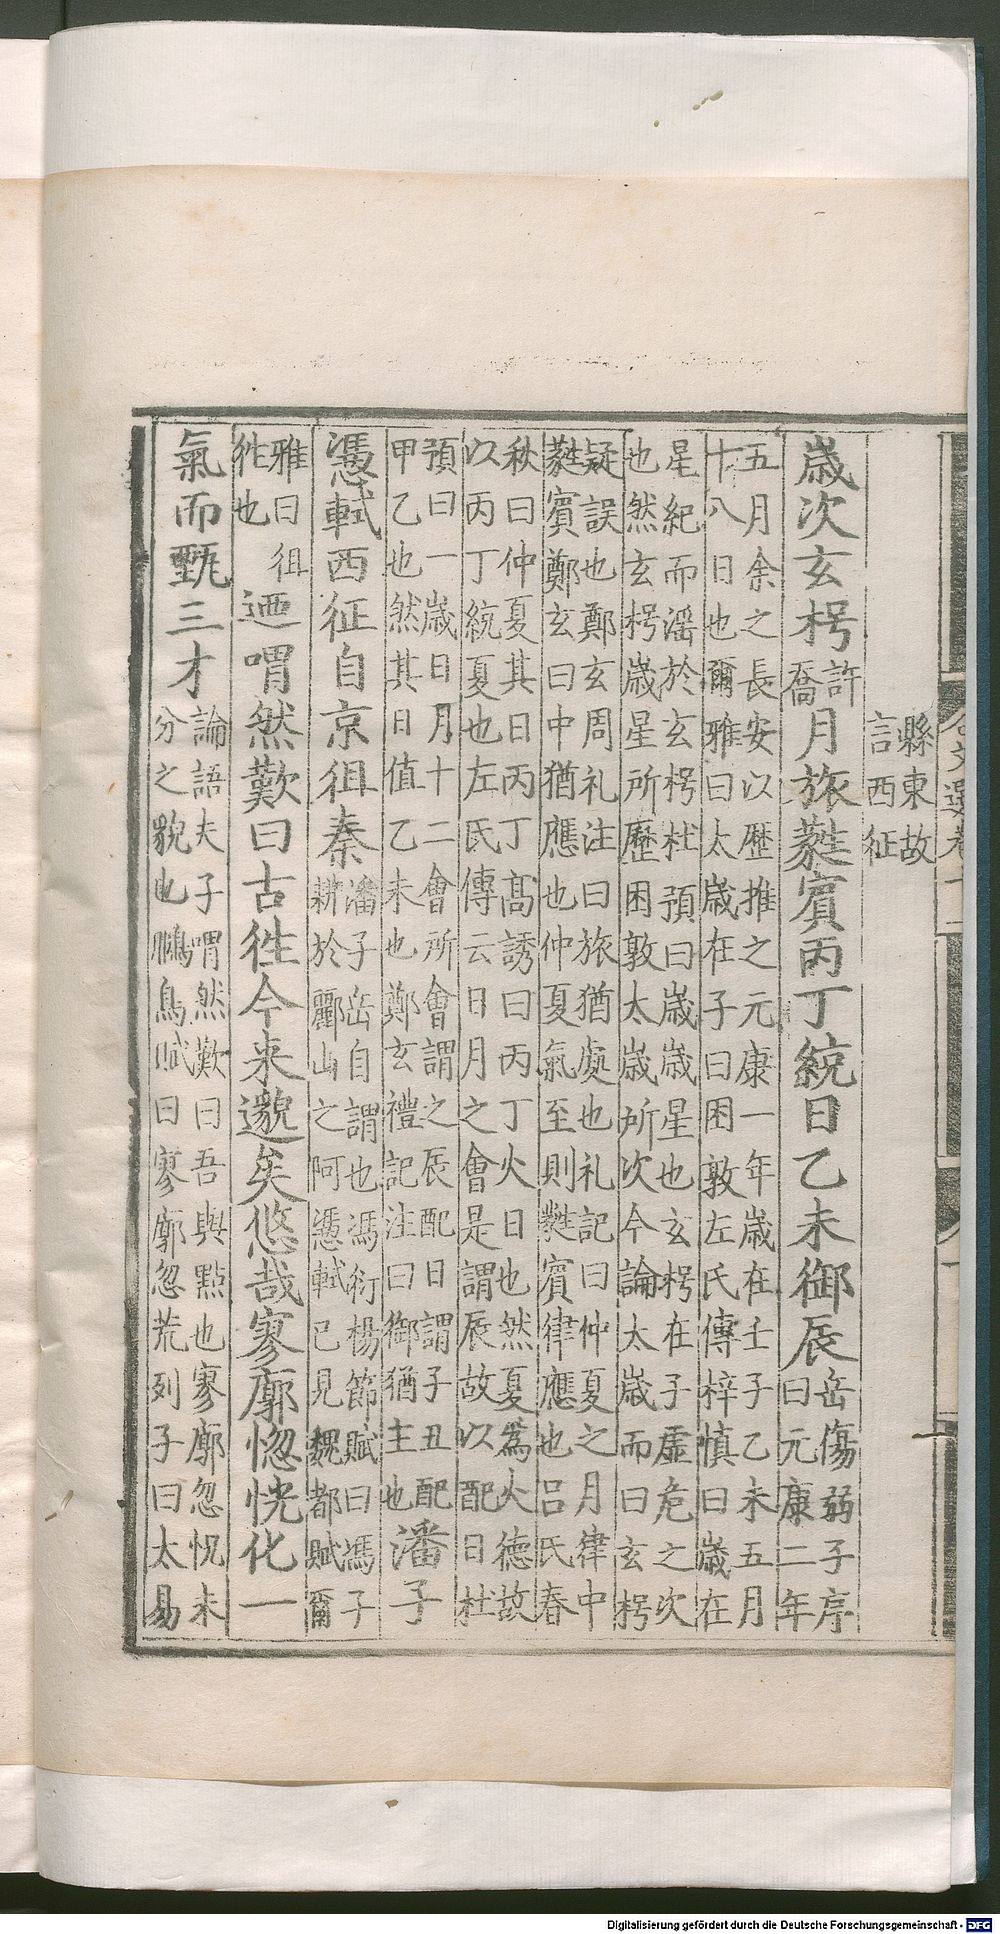 文選卷十
縣東故
言西征
歲次玄枵許喬月旅蕤賓丙丁統日乙未御辰岳傷弱子序
曰元康二年
五月余之長安以歷推之元康一年歲在壬子乙未五月
十八日也爾雅曰太歲在子曰困敦左氏傳梓慎曰歲在
星紀而滛於玄枵杜預曰歲歲星也玄枵在子虛危之次
也然玄枵歲星所歷困敦太歲所次今論太歲而曰玄枵
疑誤也鄭玄周礼注曰旅猶處也礼記曰仲夏之月律中
蕤賓鄭玄曰中猶應也仲夏氣至則蕤賓律應也吕氏春
秋曰仲夏其日丙丁高誘曰丙丁火日也然夏為火德故
以丙丁統夏也左氏傳云日月之會是謂辰故以配日杜
預曰一歲日月十二會所會謂之辰配日謂子丑配
甲乙也然其日值乙未也鄭玄禮記注曰御猶主也潘子
憑軾西征自京徂秦潘子岳自謂也馮衍楊節賦曰馮子
耕於酈山之阿憑軾已見魏都賦爾
雅曰徂
徃也迺喟然歎曰古徃今来邈矣悠哉寥廓惚恍化一
氣而甄三才論語夫子喟然歎曰吾與點也寥廓忽怳未
分之貌也鵩鳥賦曰寥廓忽荒列子曰太易
Digitalisierung gefördert durch die Deutsche Forschungsgemeinschaft - DFG